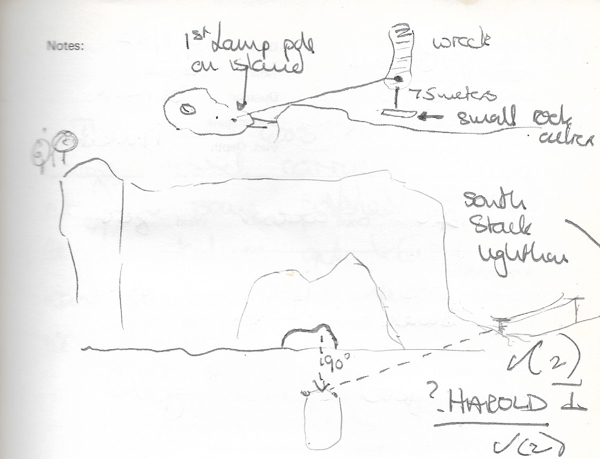 Notes:
1st Lamp pole
on island
wreck
7.5 meters
small rock
South
Stack
Lighthou
90°
√(2)
?. HAROLD I
√(2)